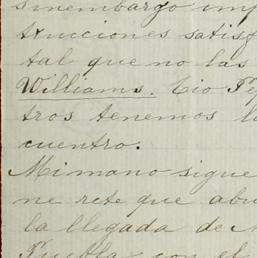 sinembargo imp
trucciones satisf
tal que no las
Williams. Tio Pep
tros tenemos l
cuentro.
Mi mano sigue
ne rete que abu
la llegada de
Puebla con el